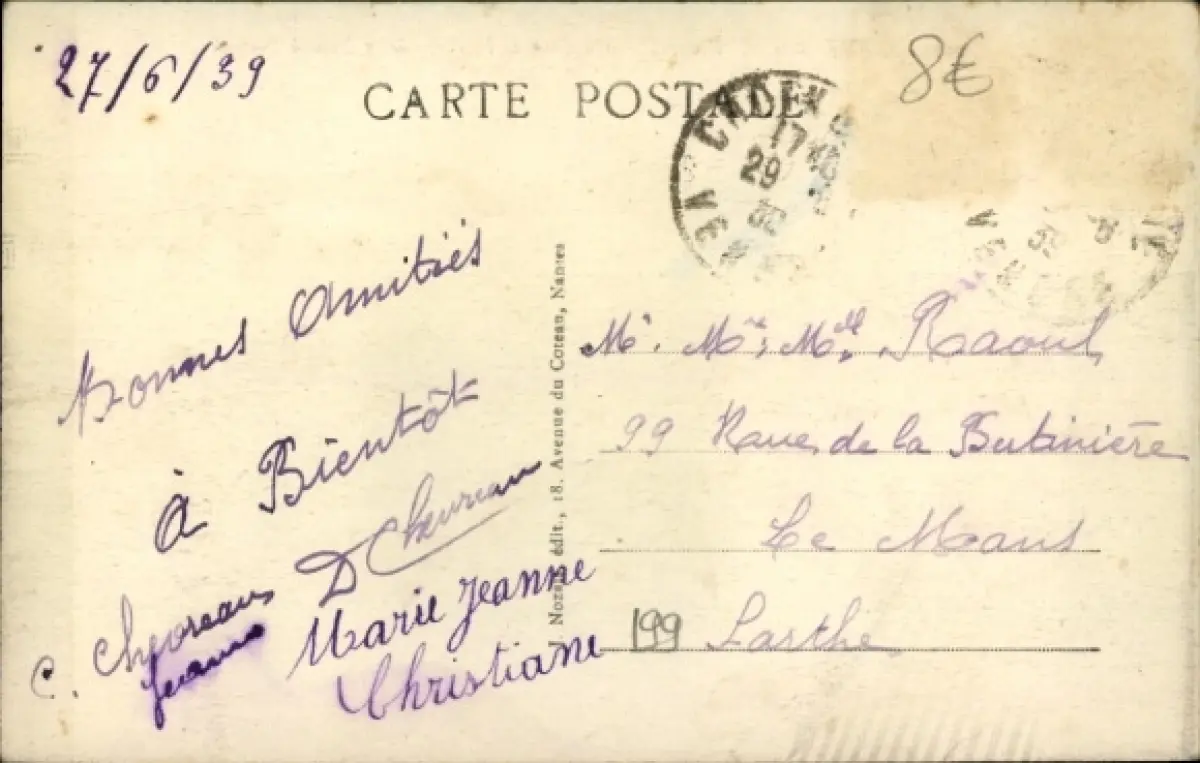 27/6/39
CARTE POSTALE
8€
17
29
Bonnes Amitiés
à Bientôt
D Chevreau
C. Chevreau
Jeanne
Marie Jeanne
Christiane
édit., 18, Avenue du Coteau, Nantes
Mr. Mme. Mlle. Raoul
99 Rue de la Butinière
Le Mans
199 Sarthe